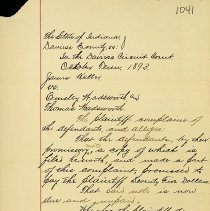 1041
The State of Indiana,
Daviess County, ss:
In the Daviess Circuit Court,
October Term, 1892.
James Kelly
vs.
Emsley Wadsworth and
Thomas Wadsworth.
The plaintiff complains of
the defendants, and alleges:
That the defendants, by their
promissory note, a copy of which is
filed herewith, and made a part
of this complaint, promised to
pay the plaintiff Seventy Five Dollars
That said note is now
due and unpaid.